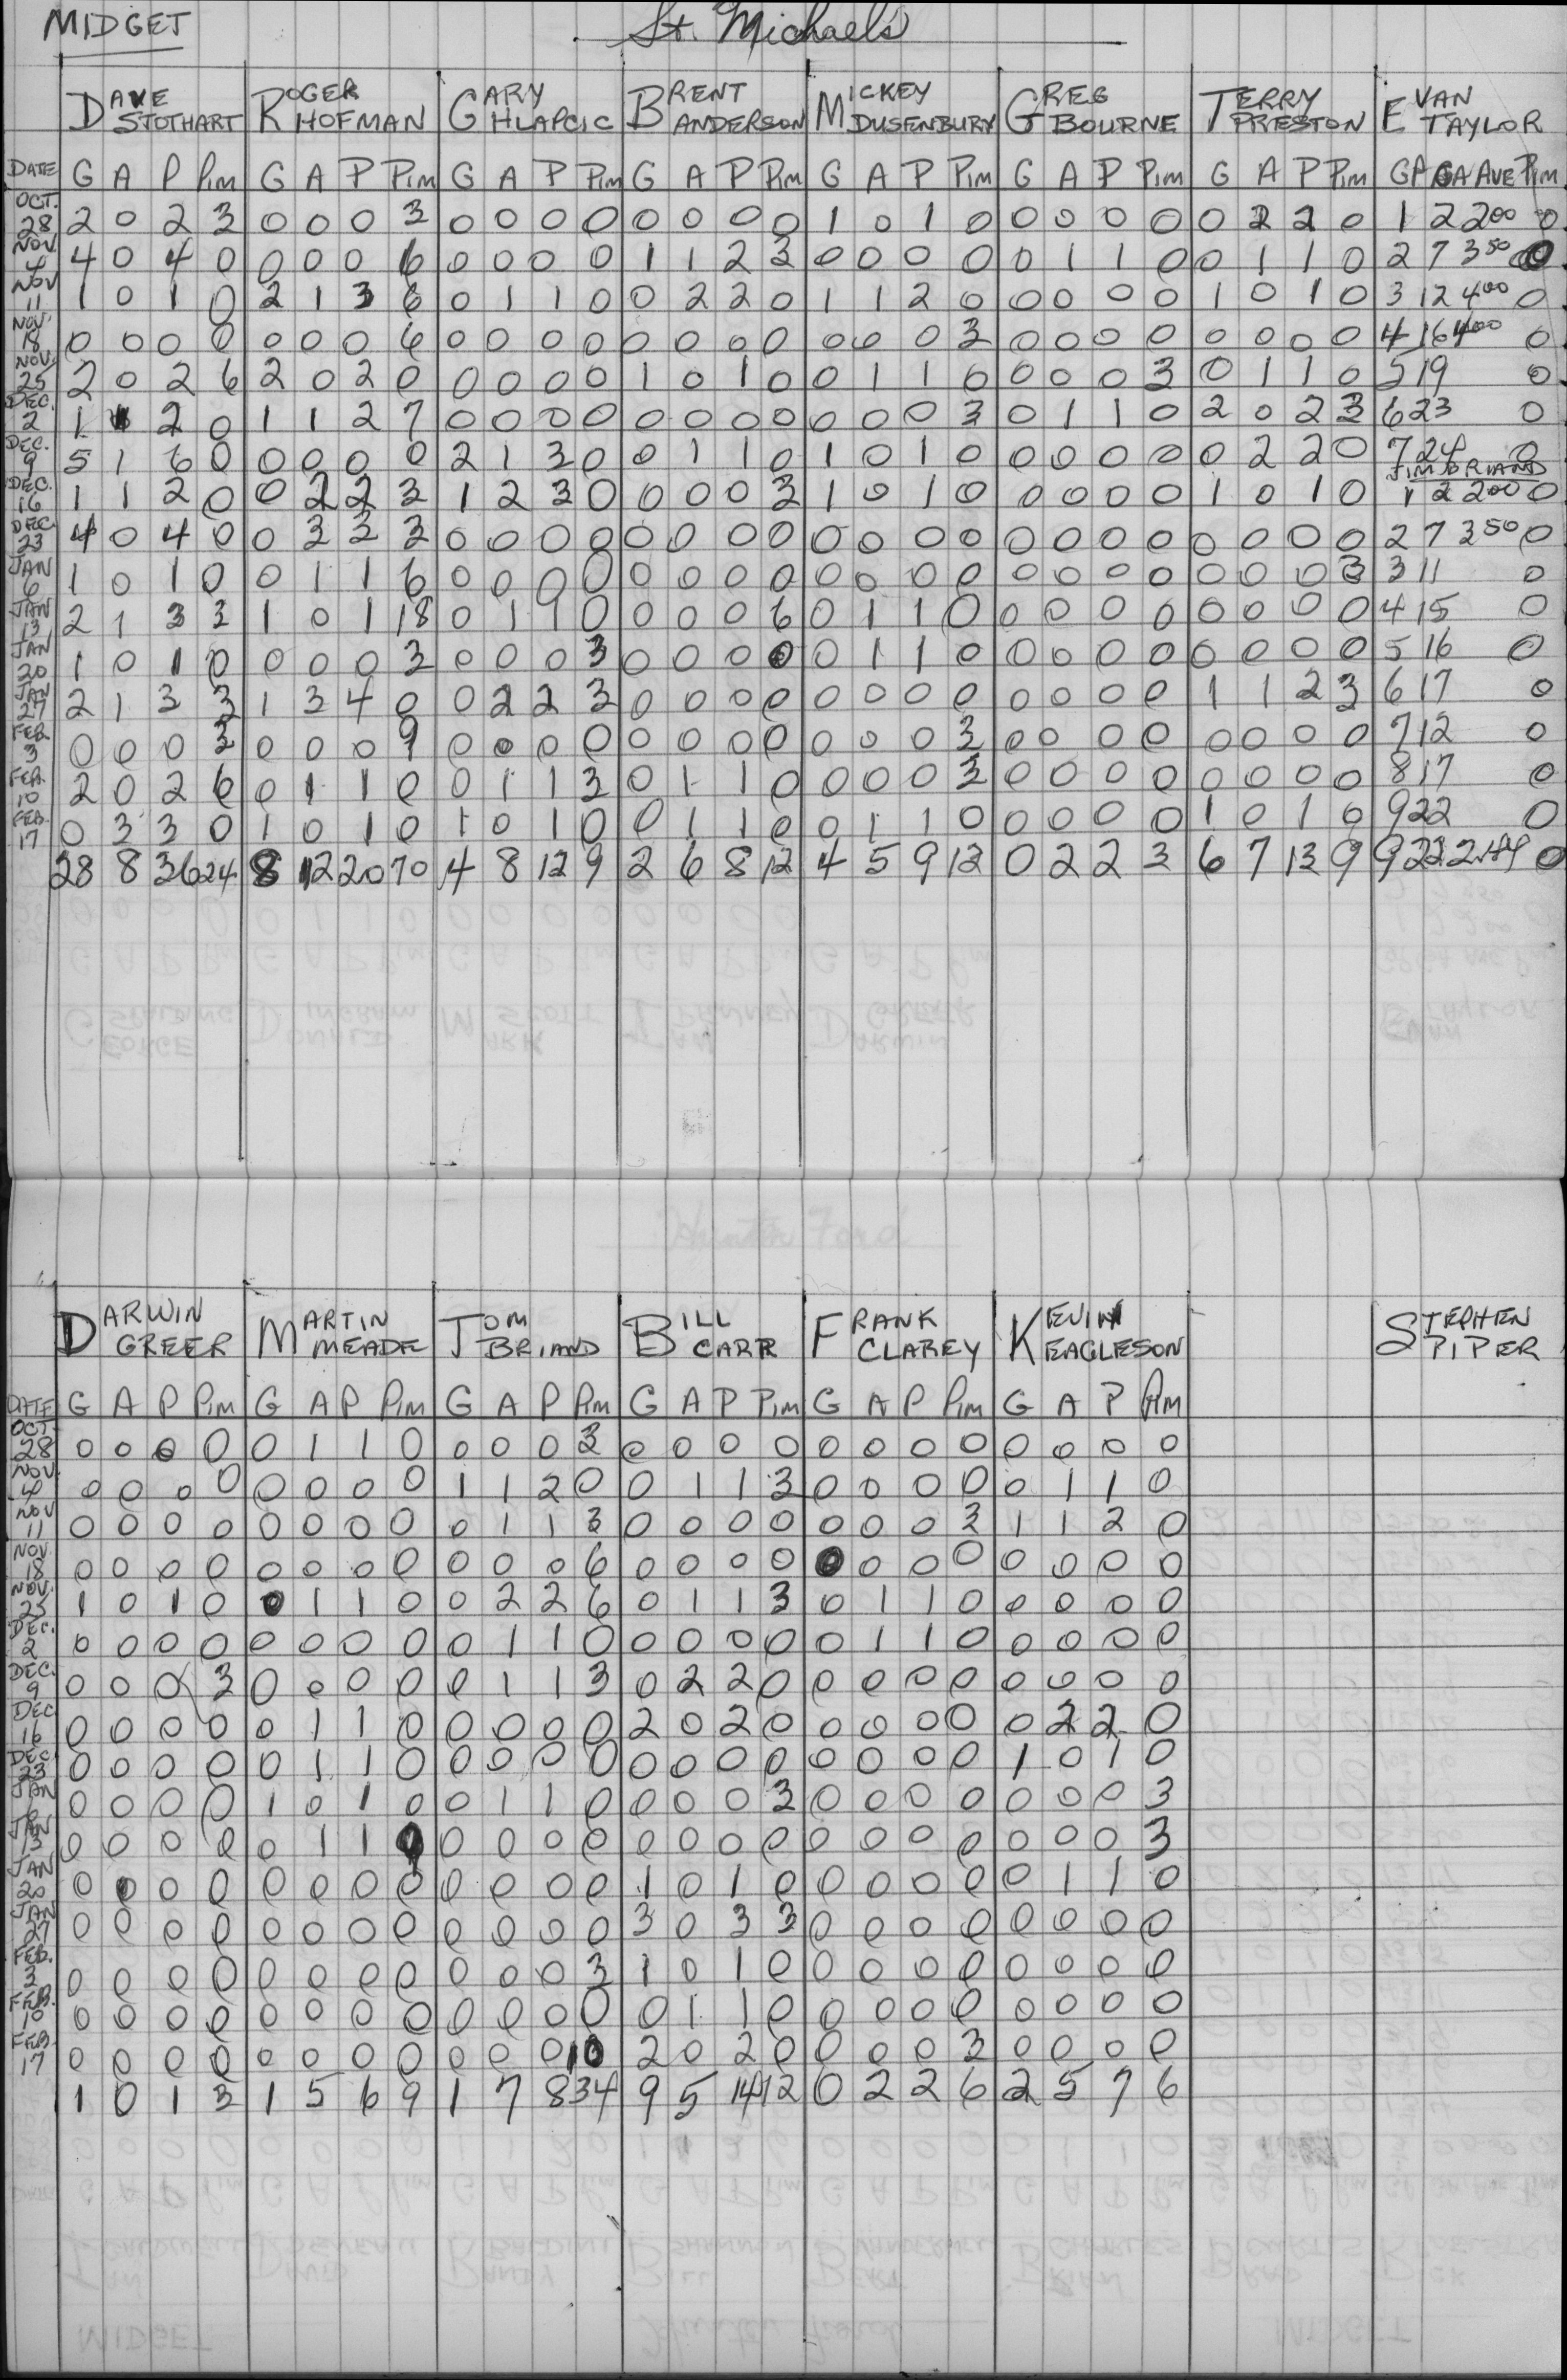 MIDGET St. Michael's
DAVE STOTHART ROGER HOFMAN GARY HLAPCIC BRENT ANDERSON MICKEY DUSENBURY GREG BOURNE TERRY PRESTON EVAN TAYLOR
DATE G A P Pim G A P Pim G A P Pim G A P Pim G A P Pim G A P Pim G A P Pim GP GA AVE Pim
OCT. 28 2 0 2 3 0 0 0 3 0 0 0 0 0 0 0 0 1 0 1 0 0 0 0 0 0 2 2 0 1 2 2.00 0
NOV 4 4 0 4 0 0 0 0 6 0 0 0 0 1 1 2 3 0 0 0 0 0 1 1 0 0 1 1 0 2 7 3.50 0
NOV 11 1 0 1 0 2 1 3 6 0 1 1 0 0 2 2 0 1 1 2 0 0 0 0 0 1 0 1 0 3 12 4.00 0
NOV 18 0 0 0 0 0 0 0 6 0 0 0 0 0 0 0 0 0 0 0 3 0 0 0 0 0 0 0 0 4 16 4.00 0
NOV. 25 2 0 2 6 2 0 2 0 0 0 0 0 1 0 1 0 0 1 1 0 0 0 0 3 0 1 1 0 5 19 0
DEC. 2 1 1 2 0 1 1 2 7 0 0 0 0 0 0 0 0 0 0 0 3 0 1 1 0 2 0 2 3 6 23 0
DEC. 9 5 1 6 0 0 0 0 0 2 1 3 0 0 1 1 0 1 0 1 0 0 0 0 0 0 2 2 0 7 24 0
JIM BRIAND
DEC. 16 1 1 2 0 0 2 2 3 1 2 3 0 0 0 0 3 1 0 1 0 0 0 0 0 1 0 1 0 1 2 2.00 0
DEC. 23 4 0 4 0 0 3 3 3 0 0 0 0 0 0 0 0 0 0 0 0 0 0 0 0 0 0 0 0 2 7 3.50 0
JAN 6 1 0 1 0 0 1 1 6 0 0 0 0 0 0 0 0 0 0 0 0 0 0 0 0 0 0 0 3 3 11 0
JAN 13 2 1 3 3 1 0 1 18 0 1 1 0 0 0 0 6 0 1 1 0 0 0 0 0 0 0 0 0 4 15 0
JAN 20 1 0 1 0 0 0 0 3 0 0 0 3 0 0 0 0 0 1 1 0 0 0 0 0 0 0 0 0 5 16 0
JAN 27 2 1 3 3 1 3 4 0 0 2 2 3 0 0 0 0 0 0 0 0 0 0 0 0 1 1 2 3 6 17 0
FEB. 3 0 0 0 3 0 0 0 9 0 0 0 0 0 0 0 0 0 0 0 3 0 0 0 0 0 0 0 0 7 12 0
FEB. 10 2 0 2 6 0 1 1 0 0 1 1 3 0 1 1 0 0 0 0 3 0 0 0 0 0 0 0 0 8 17 0
FEB. 17 0 3 3 0 1 0 1 0 1 0 1 0 0 1 1 0 0 1 1 0 0 0 0 0 1 0 1 0 9 22 0
28 8 36 24 8 12 20 70 4 8 12 9 2 6 8 12 4 5 9 12 0 2 2 3 6 7 13 9 9 22 2.44 0
DARWIN GREER MARTIN MEADE TOM BRIAND BILL CARR FRANK CLAREY KEVIN EAGLESON STEPHEN PIPER
DATE G A P Pim G A P Pim G A P Pim G A P Pim G A P Pim G A P Pim
OCT. 28 0 0 0 0 0 1 1 0 0 0 0 3 0 0 0 0 0 0 0 0 0 0 0 0
NOV. 4 0 0 0 0 0 0 0 0 1 1 2 0 0 1 1 3 0 0 0 0 0 1 1 0
NOV 11 0 0 0 0 0 0 0 0 0 1 1 3 0 0 0 0 0 0 0 3 1 1 2 0
NOV. 18 0 0 0 0 0 0 0 0 0 0 0 6 0 0 0 0 0 0 0 0 0 0 0 0
NOV. 25 1 0 1 0 0 1 1 0 0 2 2 6 0 1 1 3 0 1 1 0 0 0 0 0
DEC. 2 0 0 0 0 0 0 0 0 0 1 1 0 0 0 0 0 0 1 1 0 0 0 0 0
DEC. 9 0 0 0 3 0 0 0 0 0 1 1 3 0 2 2 0 0 0 0 0 0 0 0 0
DEC 16 0 0 0 0 0 1 1 0 0 0 0 0 2 0 2 0 0 0 0 0 0 2 2 0
DEC. 23 0 0 0 0 0 1 1 0 0 0 0 0 0 0 0 0 0 0 0 0 1 0 1 0
JAN 6 0 0 0 0 1 0 1 0 0 1 1 0 0 0 0 3 0 0 0 0 0 0 0 3
JAN 13 0 0 0 0 0 1 1 9 0 0 0 0 0 0 0 0 0 0 0 0 0 0 0 3
JAN 20 0 0 0 0 0 0 0 0 0 0 0 0 1 0 1 0 0 0 0 0 0 1 1 0
JAN 27 0 0 0 0 0 0 0 0 0 0 0 0 3 0 3 3 0 0 0 0 0 0 0 0
FEB. 3 0 0 0 0 0 0 0 0 0 0 0 3 1 0 1 0 0 0 0 0 0 0 0 0
FEB. 10 0 0 0 0 0 0 0 0 0 0 0 0 0 1 1 0 0 0 0 0 0 0 0 0
FEB 17 0 0 0 0 0 0 0 0 0 0 0 10 2 0 2 0 0 0 0 3 0 0 0 0
1 0 1 3 1 5 6 9 1 7 8 34 9 5 14 12 0 2 2 6 2 5 7 6